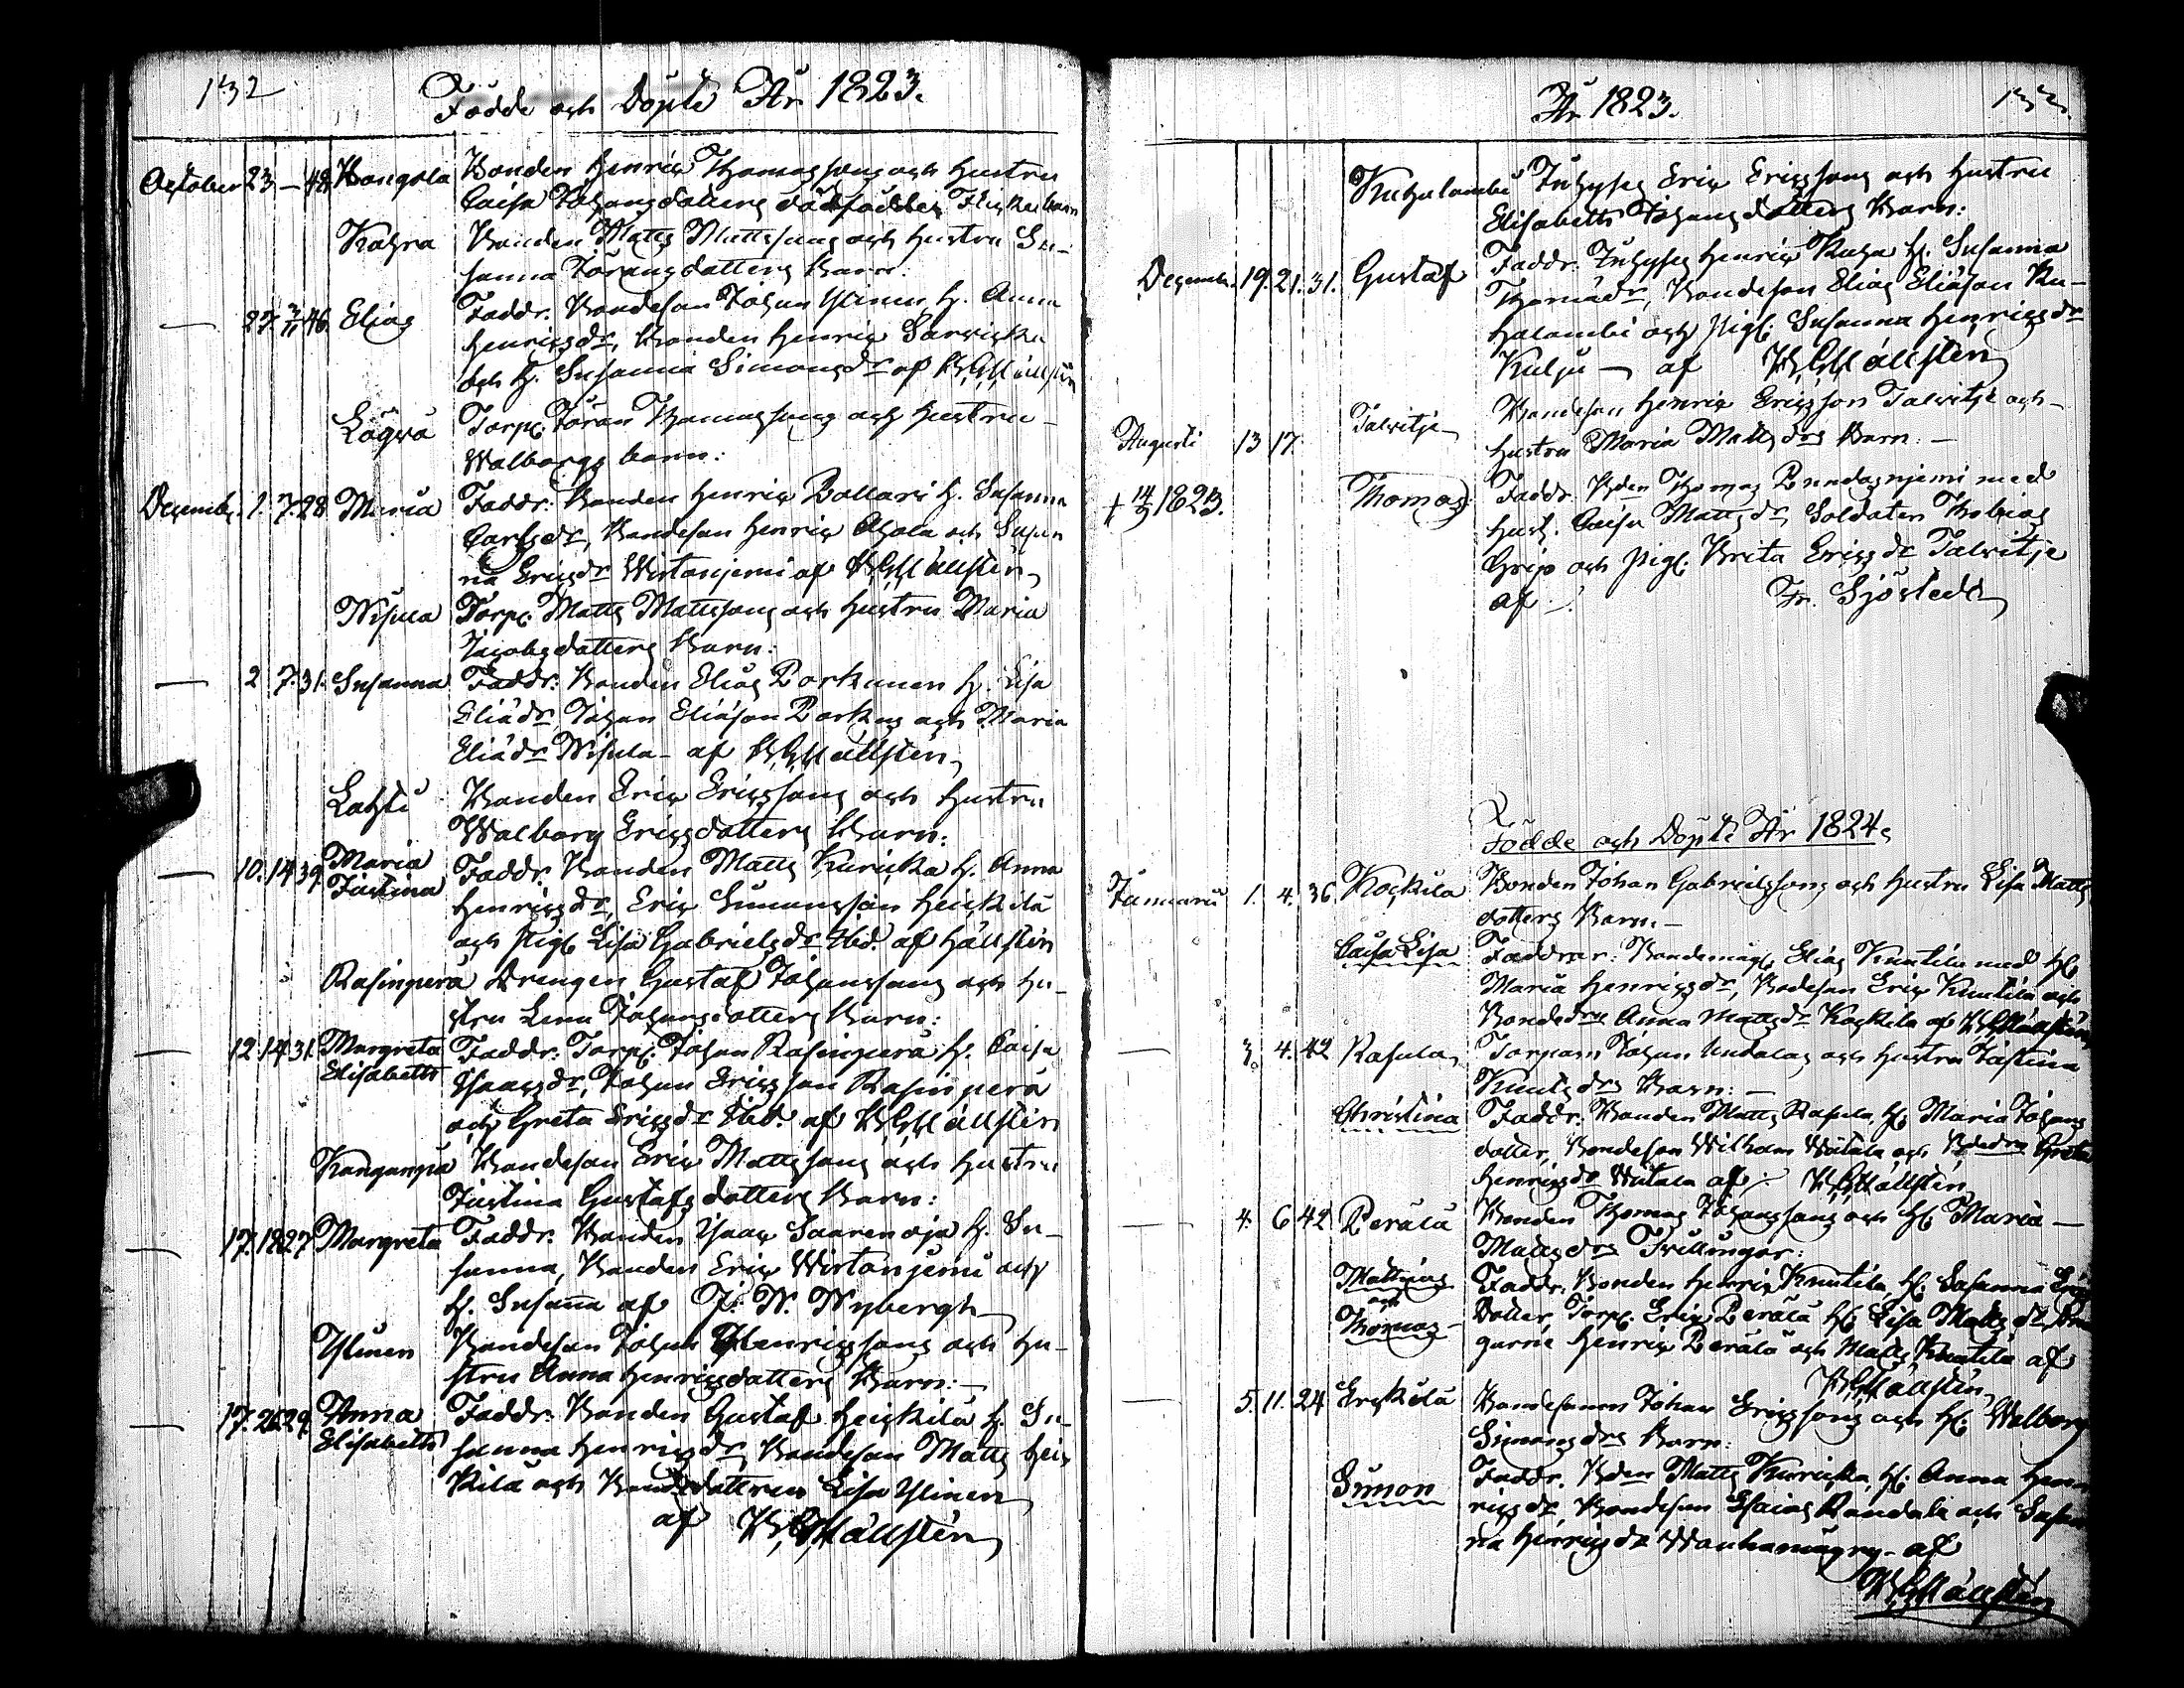 132
Födde och Döpte År 1823.
October 23 – 48 Kangola Bonden Henric Thomassons och Hustru
Caisa Johansdotters dödfödda Flickebarn
Kahra Bonden Matts Mattssons och Hustru Su-
sanna Göransdotters Barn:
— 27. 46 Elias Faddr. Bondeson Johan Ylinen, h. Anna
Henricsdr, Bonden Henric Sarvicka
och h. Susanna Simonsdr af Hällsten
Torp. Göran Thomassons och Hustru
Walborgs barn:
Decemb. 1. 7. 28 Maria Faddr. Bonden Henric Pollari h. Susanna
Carlsdr, Bondeson Henric Ahola och Susan
na Ericsdr Wirtanjemi af Hällstén
Nisula Torp. Matts Mattssons och Hustru Maria
Jacobsdotters Barn:
— 2 7. 31. Susanna Faddr: Bonden Elias Porkunen h. Lisa
Eliædr, Johan Eliæson Porkus och Maria
Eliædr Nisula – af Hällstén
Lahti Bonden Eric Ericssons och Hustru
Walborg Ericsdotters Barn:
— 10. 14 39. Maria
Justina Faddr. Bonden Matts Kuricka h. Anna
Henricsdr, Eric Simonsson Heickilä
och Pig. Lisa Gabrielsdr Ibid. af Hällstén
Rasinperä Drengen Gustaf Johanssons och Hu-
stru Lena Johansdotters Barn:
— 12. 14 31. Margreta
Elisabeth Faddr: Torp. Johan Rasinperä h. Caisa
Isaacsdr, Johan Ericsson Rasinperä
och Greta Ericsdr Ibid. af Hällstén
Kanganpä Bondeson Eric Mattssons och Hustru
Justina Gustafsdotters Barn:
— 17. 18 27 Margreta Faddr. Bonden Isaac Saarenoja h. Su-
sanna, Bonden Eric Wirtanjemi och
h. Susanna af J. W. Nybergh
Ylinen Bondeson Johan Henricssons och Hu-
stru Anna Henricsdotters Barn: —
— 17. 26 29. Anna
Elisabeth Faddr. Bonden Gustaf Heickilä h. Su-
sanna Henricsdr, Bondeson Matts Heic
kilä och Bondedottren Lisa Ylinen
af Hällstén
År 1823.
133.
Kuhalambi Inhyses Eric Ericssons och Hustru
Elisabeth Johansdotters Barn:
Decemb. 19. 21. 31. Gustaf Faddr. Inhyses Henric Kuha h. Susanna
Thomædr, Bondeson Elias Eliæson Ku-
halambi och Pig. Susanna Henricsdr
Kulju — af Hällstén
Augusti 13 17. Talvitje Bondeson Henric Ericsson Talvitje och
Hustru Maria Mattsdrs Barn: —
+ 14/9 1823. Thomas Faddr. Bden Thomas Rundasnjemi med
Hust. Caisa Mattsdr, Soldaten Tobias
Grip och Pig. Brita Ericsdr Talvitje
af Fr. Sjöstedt
Födde och Döpte År 1824.
Januarii 1. 4. 36. Kockila Bonden Johan Gabrielssons och Hustru Lisa Matts
dotters Barn. —
Caisa Lisa Faddrar: Bondemåg. Elias Knutila med H.
Maria Henricsdr, Bodeson Eric Knutila och
Bondedrn Anna Mattsdr Kockila af Hällstén
— 3. 4. 42 Rasula Torparn Johan Undalas och Hustru Justina
Knutsdrs Barn: —
Christina Faddr. Bonden Matts Rasula, H. Maria Johans
dotter, Bondeson Wilhem Witala och Bdedrn Greta
Henricsdr Witala af Hällstén
— 4. 6 42 Perälä Bonden Thomas Johanssons och H. Maria —
Mattsdrs Tvillingar:
Matthias
och
Thomas Faddr. Bonden Henric Knutila, H. Susanna Erics
dotter, Torp. Eric Perälä H. Lisa Mattsdr, Drän
garne Henric Perälä och Matts Knutila af
Hällstén
— 5. 11. 24 Erckilä Bondesonen Johan Ericssons och H. Walborg
Simonsdrs Barn:
Simon Faddr. Bden Matts Kuricka, H. Anna Hen
ricsdr, Bondeson Esaias Randala och Susan
na Henricsdr Wanhamägry – af
Hällstén